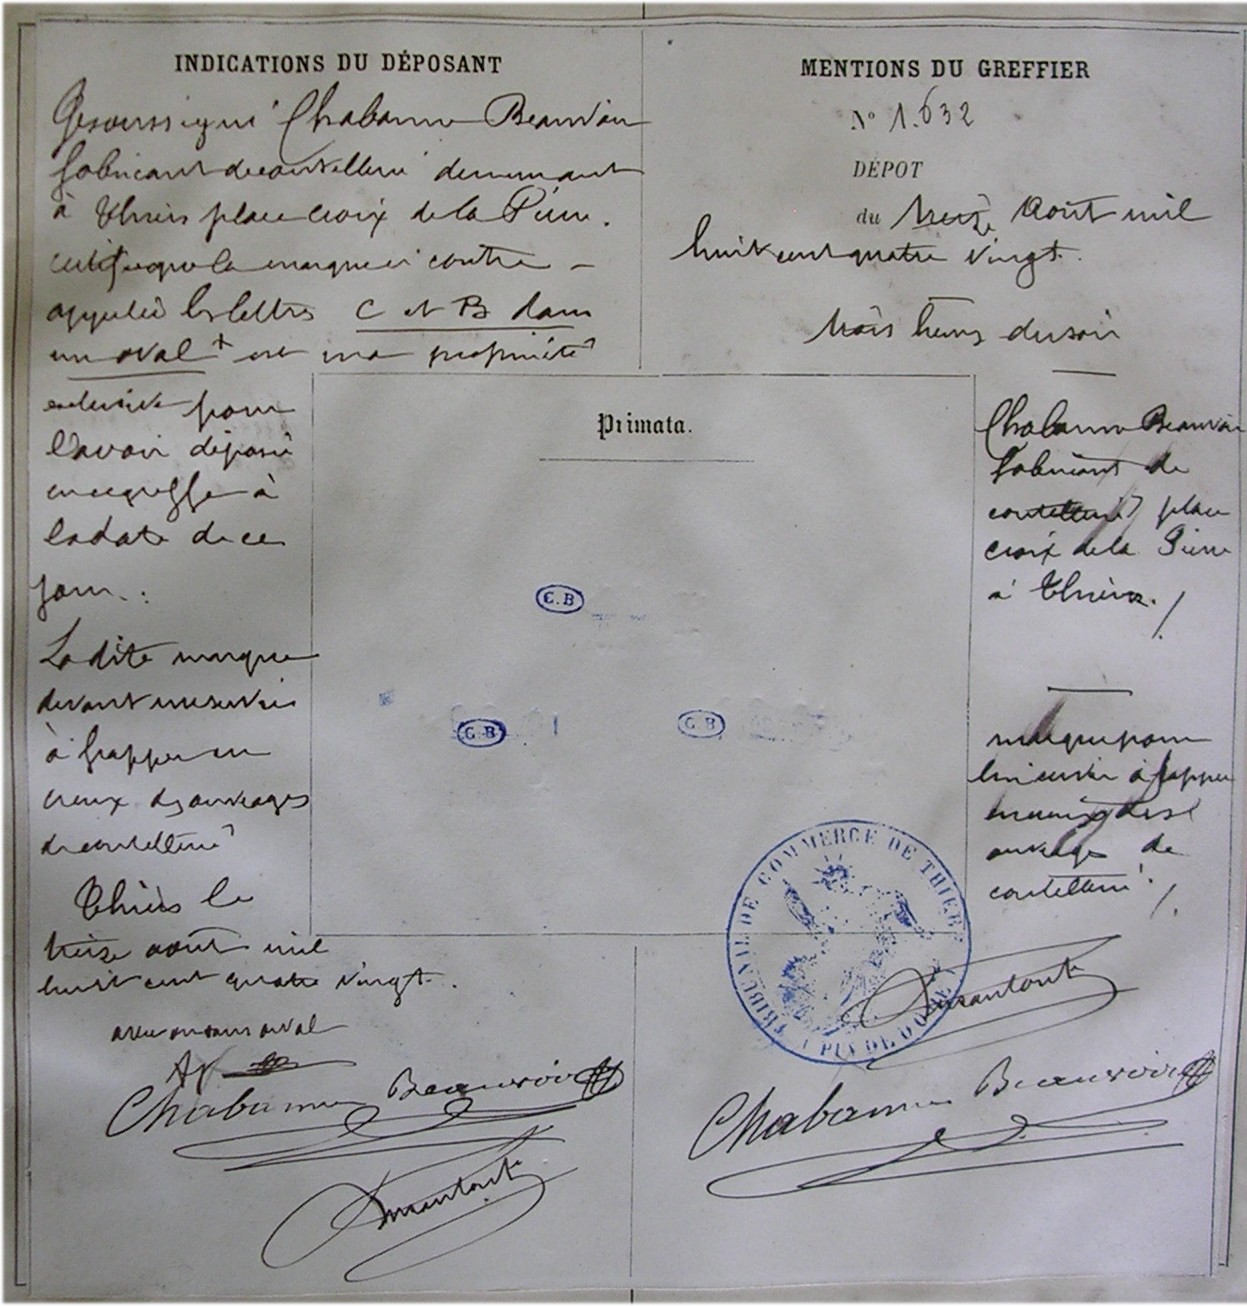 INDICATIONS DU DÉPOSANT
Je soussigné Chabanne Beauvoir
fabricant de coutellerie demeurant
à Thiers place croix de la Pierre.
certifie que la marque ci contre
appelée les lettres C et B dans
un oval + est ma propriété
exclusive pour
l'avoir déposée
au greffe à
la date de ce
jour.
La dite marque
devant me servir
à frapper en
creux des ouvrages
de coutellerie
Thiers le
treize août mil
huit cent quatre vingt.
avec ou sans oval
Chabanne Beauvoir
MENTIONS DU GREFFIER
N° 1.632
DÉPOT
du treize Août mil
huit cent quatre vingt.
trois heures du soir
Chabanne Beauvoir
fabricant de
coutellerie place
croix de la Pierre
à Thiers.
marque pour
lui servir à frapper
ouvrages de
coutellerie.
Chabanne Beauvoir
Primata.
C.B
C.B
C B
TRIBUNAL DE COMMERCE DE THIERS
PUY DE DÔME